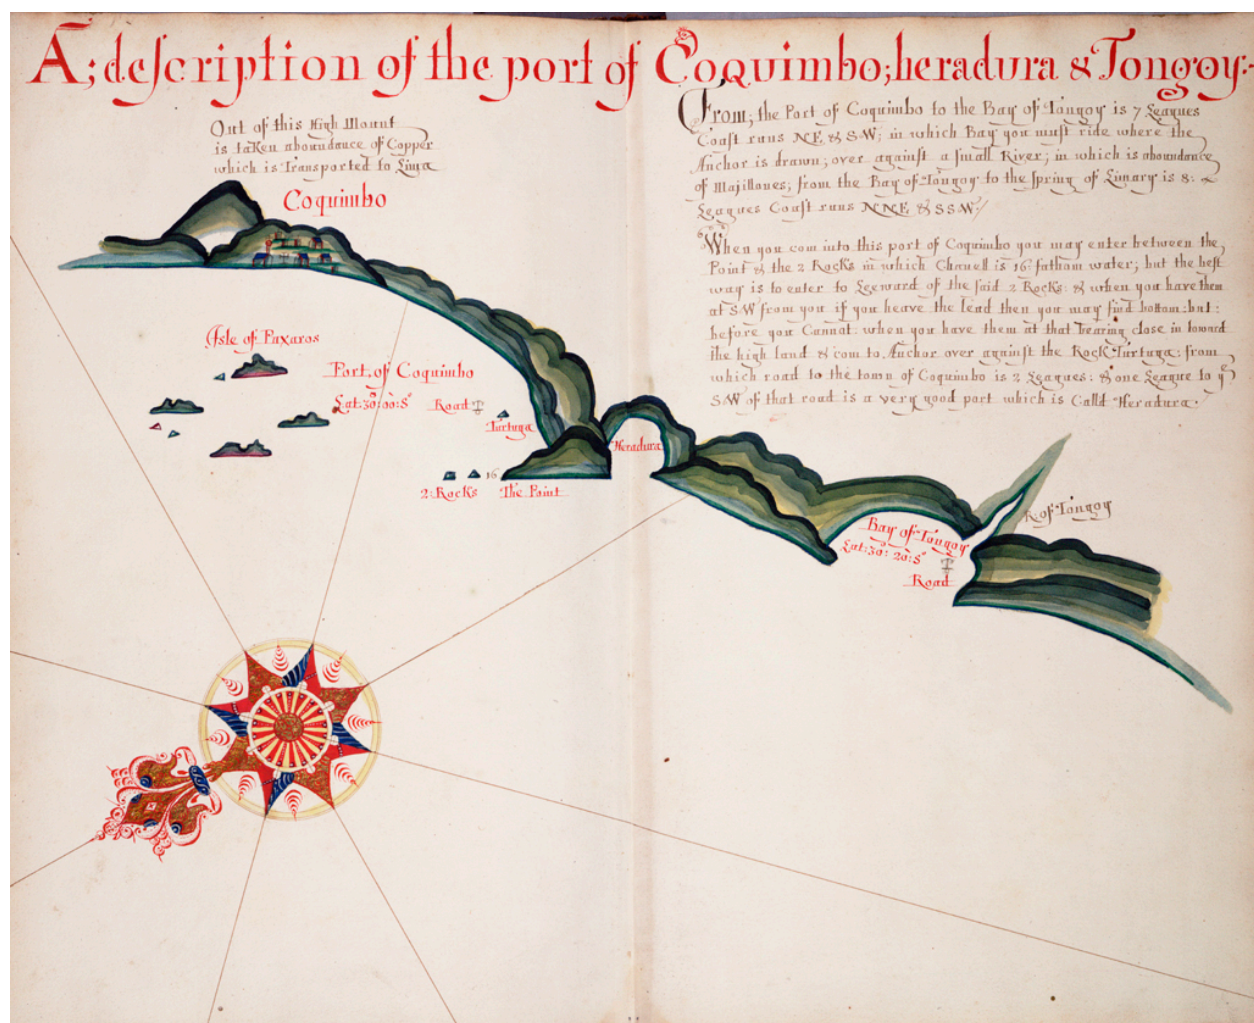 A; description of the port of Coquimbo; heradura & Tongoy:-
Out of this High Mount
is taken aboundance of Copper
which is Transported to Lima
Coquimbo
From; the Port of Coquimbo to the Bay of Tongoy is 7 Leagues
Coast runs NE & SW; in which Bay you must ride where the
Anchor is drawn; over against a small River; in which is aboundance
of Majillones; from the Bay of Tongoy to the spring of Limary is 8:
Leagues Coast runs NNE & SSW:/
When you com into this port of Coquimbo you may enter between the
Point & the 2 Rocks in which Chanell is 16: fathom water; but the best
way is to enter to Leeward of the said 2 Rocks: & when you have them
at SW from you if you heave the lead then you may find bottom: but:
before you Cannot: when you have them at that bearing close in toward
the high land & com to Anchor over against the Rock Turtuga: from
which road to the town of Coquimbo is 2 Leagues: & one League to yᵉ
SW of that road is a very good port which is Calld Heradura.
Isle of Paxaros
Port of Coquimbo
Lat: 30°: 00: S°
Road
Turtuga
Heradura
16
2: Rocks
The Point
Bay of Tongoy
Lat: 30°: 20: S°
Road
R: of Tongoy